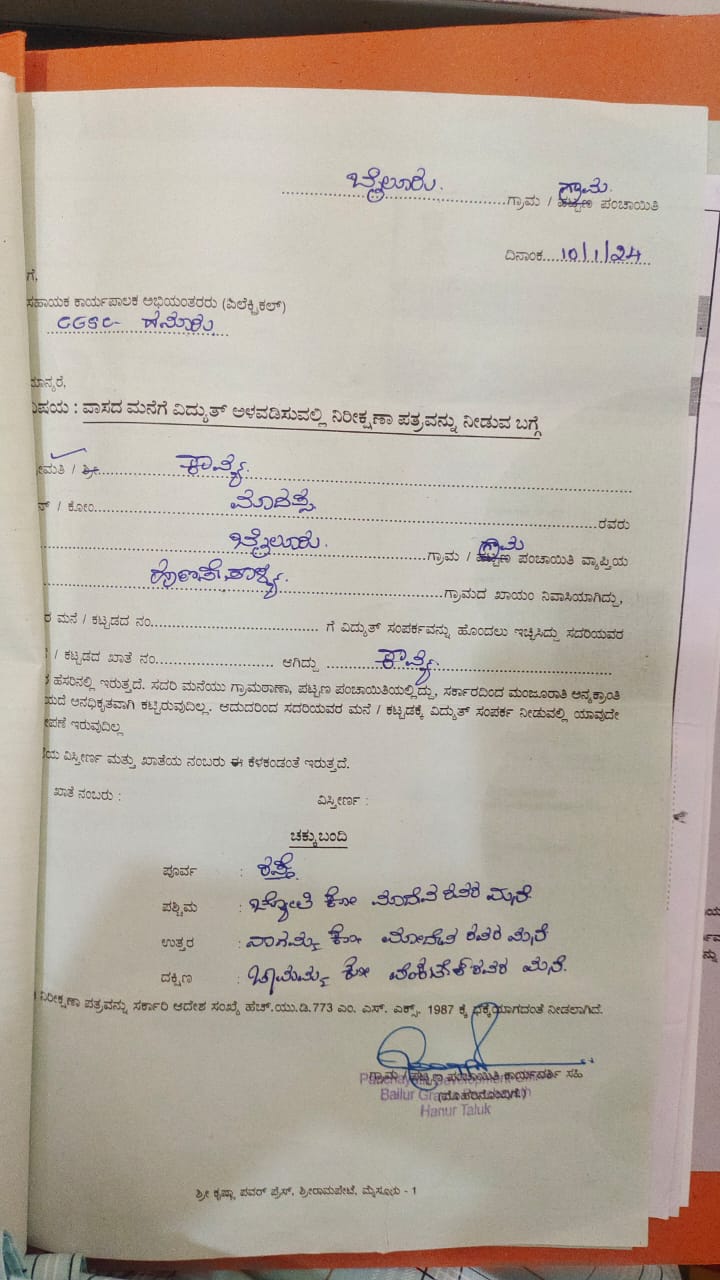 ಬೈಲೂರು. ಗ್ರಾಮ / ಪಟ್ಟಣ ಗ್ರಾಮ ಪಂಚಾಯಿತಿ
ದಿನಾಂಕ....10/1/24
ಗೆ,
ಸಹಾಯಕ ಕಾರ್ಯಪಾಲಕ ಅಭಿಯಂತರರು (ಎಲೆಕ್ಟ್ರಿಕಲ್)
ಹನೂರು
ಮಾನ್ಯರೆ,
ವಿಷಯ : ವಾಸದ ಮನೆಗೆ ವಿದ್ಯುತ್ ಅಳವಡಿಸುವಲ್ಲಿ ನಿರೀಕ್ಷಣಾ ಪತ್ರವನ್ನು ನೀಡುವ ಬಗ್ಗೆ
ಮತಿ / ಶ್ರೀ ಕಾವ್ಯ
ನ್ / ಕೋಂ ಮಾದಪ್ಪ ರವರು
ಬೈಲೂರು. ಗ್ರಾಮ / ಪಟ್ಟಣ ಗ್ರಾಮ ಪಂಚಾಯಿತಿ ವ್ಯಾಪ್ತಿಯ
ಗ್ರಾಮದ ಖಾಯಂ ನಿವಾಸಿಯಾಗಿದ್ದು,
ರ ಮನೆ / ಕಟ್ಟಡದ ನಂ. ಗೆ ವಿದ್ಯುತ್ ಸಂಪರ್ಕವನ್ನು ಹೊಂದಲು ಇಚ್ಛಿಸಿದ್ದು ಸದರಿಯವರ
/ ಕಟ್ಟಡದ ಖಾತೆ ನಂ. ಆಗಿದ್ದು ಕಾವ್ಯ
ಹೆಸರಿನಲ್ಲಿ ಇರುತ್ತದೆ. ಸದರಿ ಮನೆಯು ಗ್ರಾಮಠಾಣಾ, ಪಟ್ಟಣ ಪಂಚಾಯಿತಿಯಲ್ಲಿದ್ದು, ಸರ್ಕಾರದಿಂದ ಮಂಜೂರಾತಿ ಅನ್ಯಕ್ರಾಂತಿ
ಯದೆ ಅನಧಿಕೃತವಾಗಿ ಕಟ್ಟಿರುವುದಿಲ್ಲ. ಆದುದರಿಂದ ಸದರಿಯವರ ಮನೆ / ಕಟ್ಟಡಕ್ಕೆ ವಿದ್ಯುತ್ ಸಂಪರ್ಕ ನೀಡುವಲ್ಲಿ ಯಾವುದೇ
ಪಣೆ ಇರುವುದಿಲ್ಲ
ಯ ವಿಸ್ತೀರ್ಣ ಮತ್ತು ಖಾತೆಯ ನಂಬರು ಈ ಕೆಳಕಂಡಂತೆ ಇರುತ್ತದೆ.
ಖಾತೆ ನಂಬರು : ವಿಸ್ತೀರ್ಣ :
ಚಕ್ಕುಬಂದಿ
ಪೂರ್ವ : ರಸ್ತೆ
ಪಶ್ಚಿಮ : ಜ್ಯೋತಿ ಕೋಂ ಮಾದೇವ ರವರ ಮನೆ
ಉತ್ತರ : ನಾಗಮ್ಮ ಕೋಂ ರವರ ಮನೆ
ದಕ್ಷಿಣ : ಕೋಂ ವೆಂಕಟೇಶ್ ರವರ ಮನೆ.
ನಿರೀಕ್ಷಣಾ ಪತ್ರವನ್ನು ಸರ್ಕಾರಿ ಆದೇಶ ಸಂಖ್ಯೆ ಹೆಚ್.ಯು.ಡಿ.773 ಎಂ. ಎಸ್. ಎಕ್ಸ್. 1987 ಕ್ಕೆ ಧಕ್ಕೆಯಾಗದಂತೆ ನೀಡಲಾಗಿದೆ.
ಗ್ರಾಮ / ಪಟ್ಟಣ ಪಂಚಾಯಿತಿ ಕಾರ್ಯದರ್ಶಿ ಸಹಿ
(ಮೊಹರಿನೊಂದಿಗೆ)
Bailur
Hanur Taluk
ಶ್ರೀ ಕೃಷ್ಣಾ ಪವರ್ ಪ್ರೆಸ್, ಶ್ರೀರಾಮಪೇಟೆ, ಮೈಸೂರು - 1